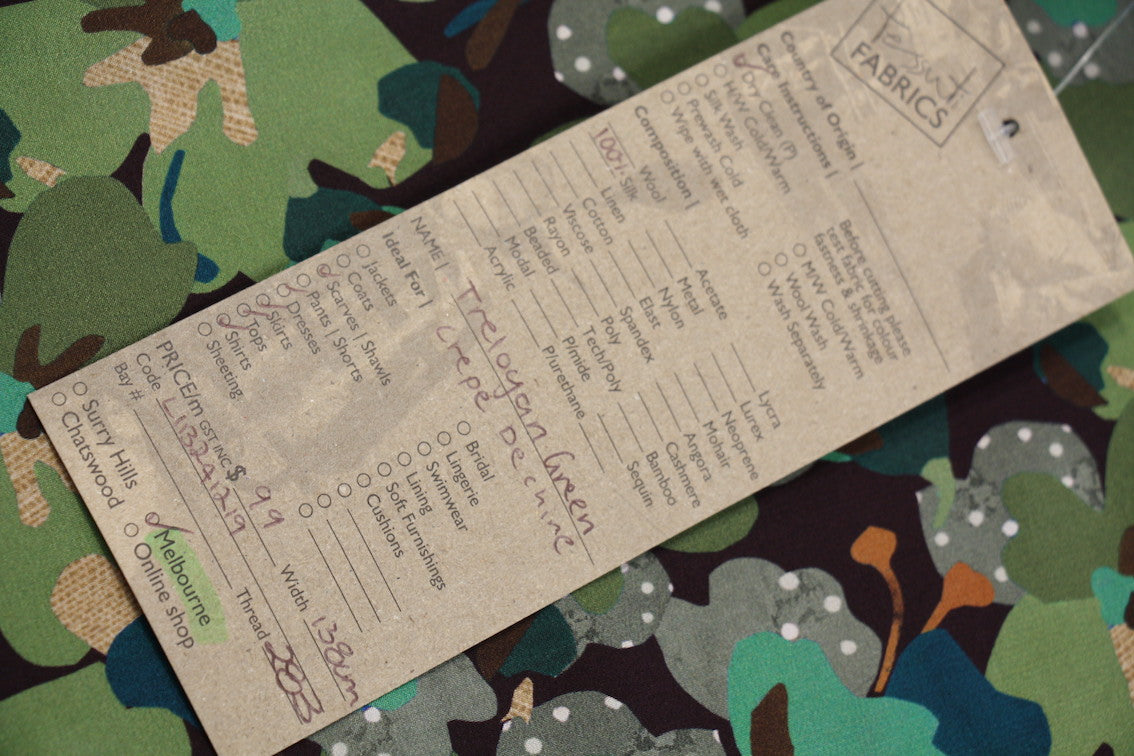 Tessuti
FABRICS
Country of Origin |
Care Instructions |
Dry Clean (P)
H/W Cold/Warm
Silk Wash
Prewash Cold
Wipe with wet cloth
Before cutting please
test fabric for colour
fastness & shrinkage
M/W Cold/Warm
Wool Wash
Wash Separately
Composition |
Wool
100% Silk
Linen
Cotton
Viscose
Rayon
Beaded
Modal
Acrylic
Acetate
Metal
Nylon
Elast
Spandex
Poly
Tech/Poly
P/mide
P/urethane
Lycra
Lurex
Neoprene
Mohair
Angora
Cashmere
Bamboo
Sequin
NAME | Treloyan Green
Crepe De chine
Ideal For |
Jackets
Coats
Scarves | Shawls
Pants | Shorts
Dresses
Skirts
Tops
Shirts
Sheeting
Bridal
Lingerie
Swimwear
Lining
Soft Furnishings
Cushions
PRICE/m GST INC $ 99 Width 138cm
Code L1324 1219 Thread
Bay #
Surry Hills
Chatswood
Melbourne
Online shop